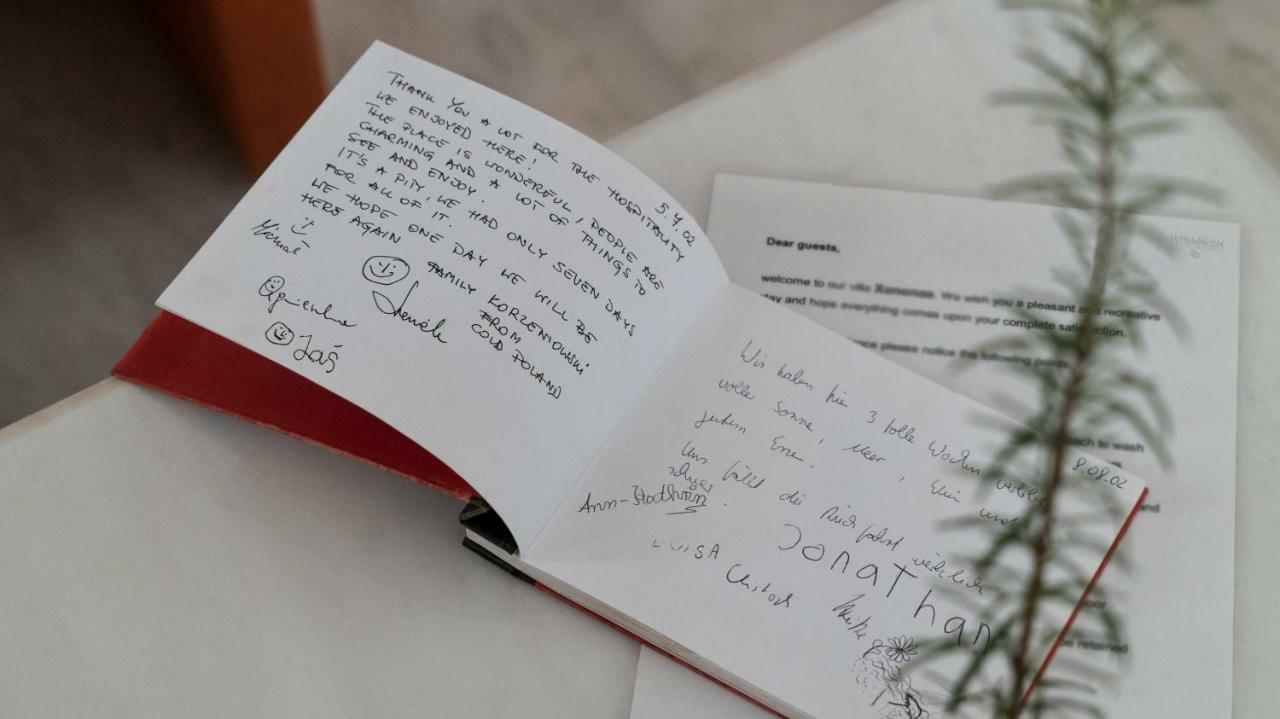 5.4.02
THANK YOU A LOT FOR THE HOSPITALITY
WE ENJOYED HERE!
THE PLACE IS WONDERFUL, PEOPLE ARE
CHARMING AND A LOT OF THINGS TO
SEE AND ENJOY.
IT'S A PITY, WE HAD ONLY SEVEN DAYS
FOR ALL OF IT.
WE HOPE ONE DAY WE WILL BE
HERE AGAIN
FAMILY KORZENIOWSKI
FROM
COLD POLAND
Jaś
8.08.02
Wir haben hier 3 tolle Wochen verlebt
volle Sonne, Meer, Wein und
gutem Essen.
Uns fällt die Rückfahrt wirklich
schwer.
Ann-
Jonathan
LUISA
Heike
Dear guests,
welcome to our villa We wish you a pleasant and recreative
day and hope everything comes upon your complete satisfaction.
please notice the following points:
to wash
and
be retained